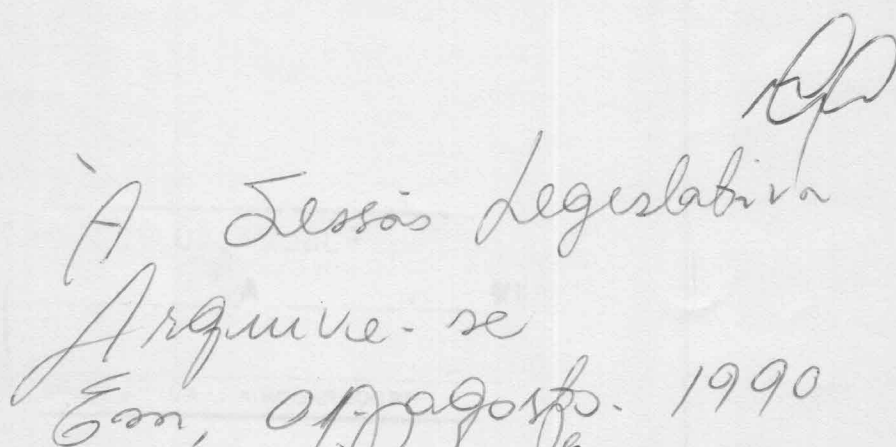 À Sessão Legislativa
Arquive-se
Em, agosto. 1990